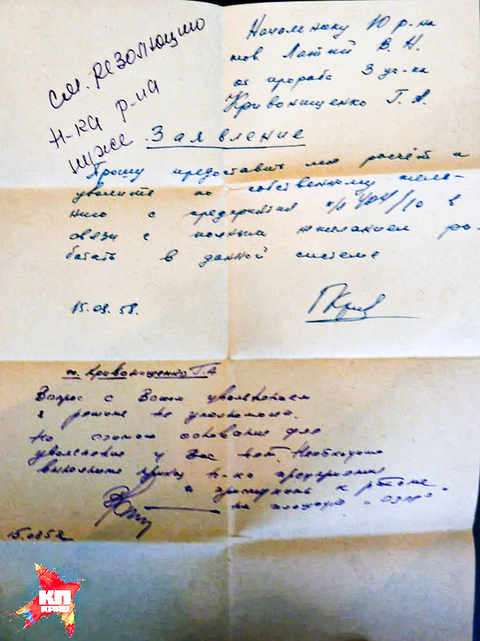 см. резолюцию
н-ка р-на
ниже.
Начальнику 10 р-на
тов Латий В. Н.
от прораба 3 уч-ка
Кривонищенко Г. А.
Заявление
Прошу предоставить мне расчёт и
уволить по собственному жела-
нию с предприятия п/я 404/10 в
связи с желанием ра-
ботать в данной системе
15.09.58.
т. Кривонищенко Г.А
Вопрос с Вашим увольнением
я решать не уполномочен.
Но считаю основание для
увольнения у Вас нет. Необходимо
выполнить приказ н-ка предприятия
и приступать к работе
на площадке
КП
KP.RU